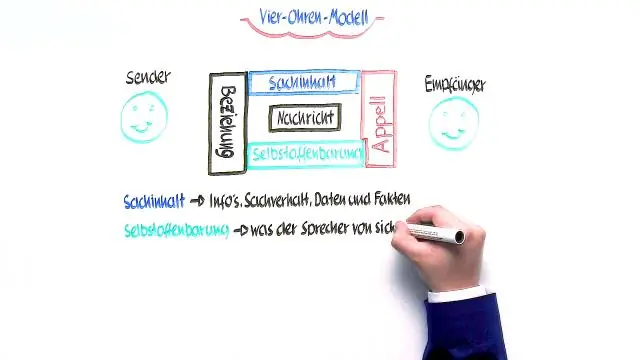 Vier-Ohren-Modell
Sender
Empfänger
Beziehung
Sachinhalt
Nachricht
Selbstoffenbarung
Appell
Sachinhalt → Info's, Sachverhalt, Daten und Fakten
Selbstoffenbarung → was der Sprecher von sich